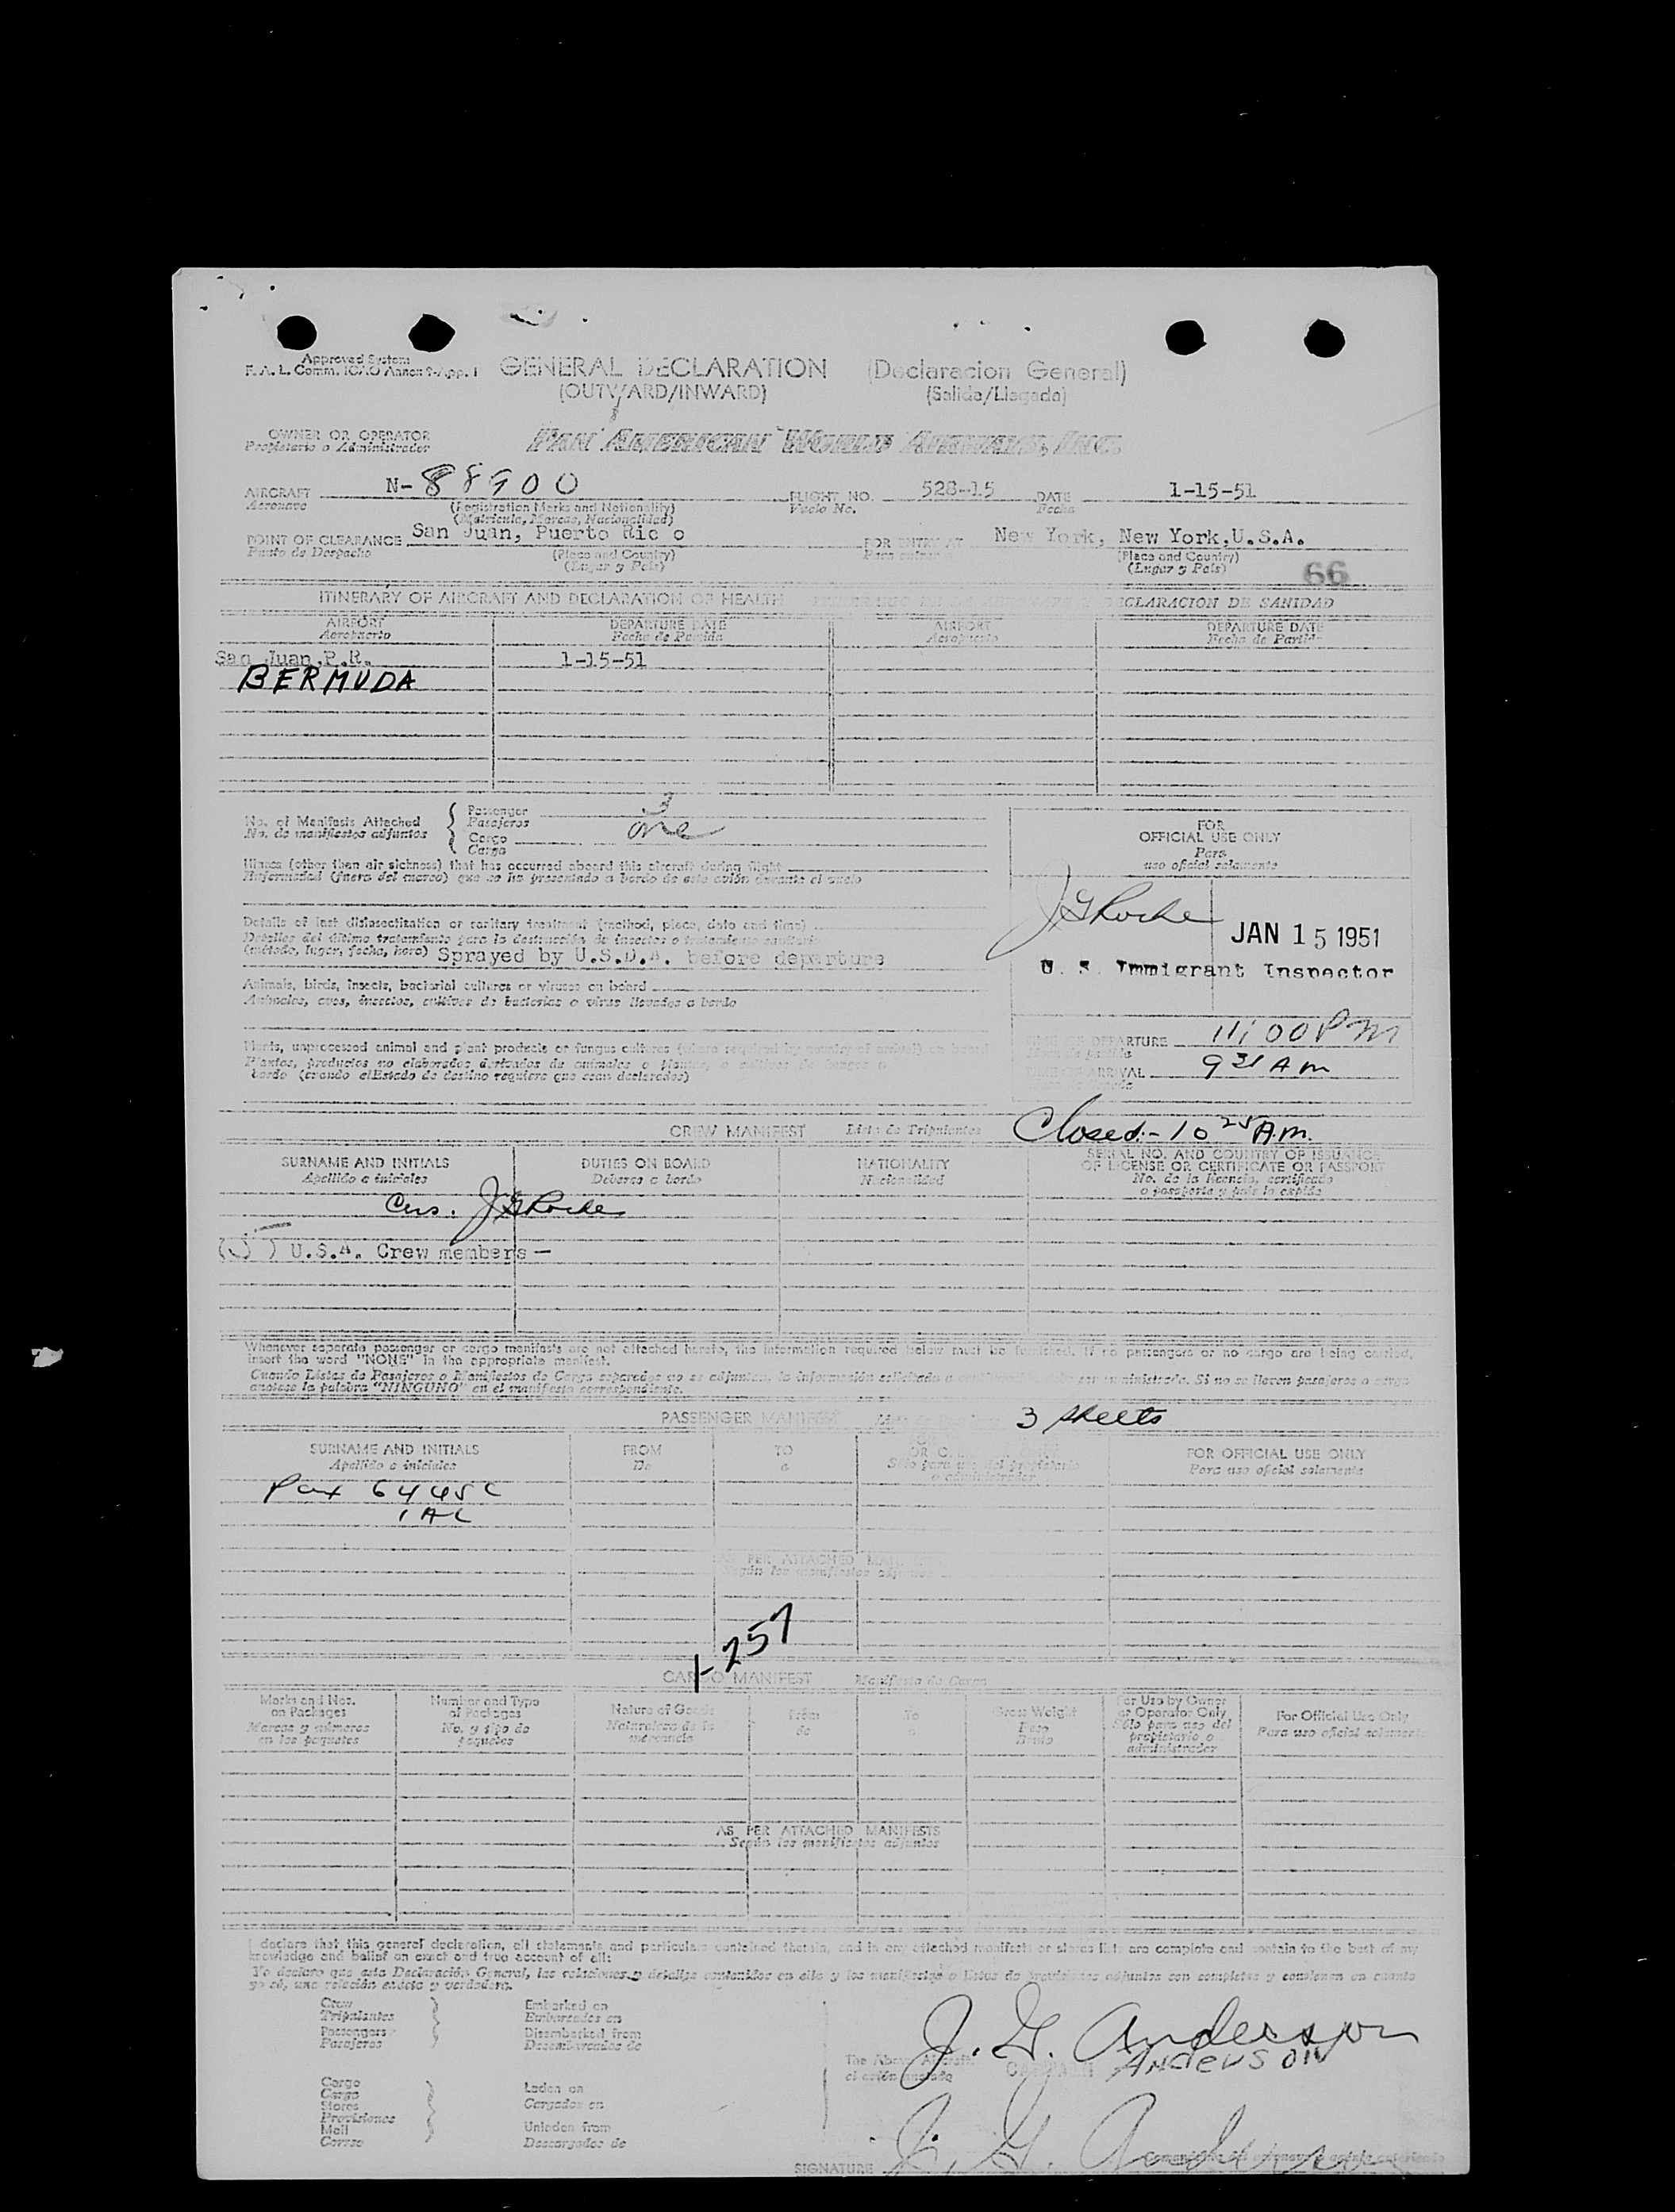 Approved System
F. A. L. Comm. ICAO Annex 9-App. 1
GENERAL DECLARATION (Declaracion General)
(OUTWARD/INWARD) (Salida/Llegada)
OWNER OR OPERATOR
Propietario o Administrador
PAN AMERICAN WORLD AIRWAYS, INC.
AIRCRAFT N-88900 FLIGHT NO. 528-15 DATE 1-15-51
Aeronave (Registration Marks and Nationality) Vuelo No. Fecha
(Matricula, Marcas, Nacionalidad)
POINT OF CLEARANCE San Juan, Puerto Ric o FOR ENTRY AT New York, New York,U.S.A.
Punto de Despacho (Place and Country) (Place and Country)
(Lugar y Pais) (Lugar y Pais)
66
ITINERARY OF AIRCRAFT AND DECLARATION OF HEALTH DECLARACION DE SANIDAD
AIRPORT DEPARTURE DATE AIRPORT DEPARTURE DATE
Aeropuerto Fecha de Partida Aeropuerto Fecha de Partida
San Juan,P.R. 1-15-51
BERMUDA
No. of Manifests Attached
No. de manifiestos adjuntos
Passenger 3
Pasajeros
Cargo one
Carga
FOR
OFFICIAL USE ONLY
Para
uso oficial solamente
Illness (other than air sickness) that has occurred aboard this aircraft during flight
Enfermedad (fuera del mareo) que se ha presentado a bordo de este avión durante el vuelo
Details of last disinsectization or sanitary treatment (method, place, date and time)
Detalles del último tratamiento para la destrucción de insectos o tratamiento sanitario
(método, lugar, fecha, hora) Sprayed by U.S.D.A. before departure
JAN 15 1951
U. S. Immigrant Inspector
Animals, birds, insects, bacterial cultures or viruses on board
Animales, aves, insectos, cultivos de bacterias o virus llevados a bordo
Plants, unprocessed animal and plant products or fungus cultures
Plantas, productos no elaborados derivados de animales o plantas, o cultivos de hongos a
bordo (cuando elEstado de destino requiere que sean declarados)
DEPARTURE 11:00 PM
ARRIVAL 9 31 AM
Closed:- 10 25 A.m.
CREW MANIFEST Lista de Tripulantes
SURNAME AND INITIALS DUTIES ON BOARD NATIONALITY SERIAL NO. AND COUNTRY OF ISSUANCE
OF LICENSE OR CERTIFICATE OR PASSPORT
Apellido e iniciales Deberes a bordo Nacionalidad No. de la licencia, certificado
o pasaporte y pais lo expide
U.S.A. Crew members —
Whenever separate passenger or cargo manifests are not attached hereto, the information required below must be furnished. If no passengers or no cargo are being carried,
insert the word "NONE" in the appropriate manifest.
Cuando Listas de Pasajeros o Manifiestos de Carga separados no se adjuntan, la información solicitada
Si no se llevan pasajeros o carga
anotese la palabra "NINGUNO" en el manifiesto correspondiente.
PASSENGER MANIFEST 3 sheets
SURNAME AND INITIALS FROM TO FOR OFFICIAL USE ONLY
Apellido e iniciales De a Sólo para uso del propietario Para uso oficial solamente
o administrador
Pax
AS PER ATTACHED
Según los manifiestos adjuntos
1-257
CARGO MANIFEST Manifiesto de Carga
Marks and Nos.
on Packages
Marcas y números
en los paquetes
Number and Type
of Packages
No. y tipo de
paquetes
Nature of Goods
Naturaleza de la
mercancía
From
de
To
a
Gross Weight
Peso
Bruto
For Use by Owner
or Operator Only
Sólo para uso del
propietario o
administrador
For Official Use Only
Para uso oficial solamente
AS PER ATTACHED MANIFESTS
Según los manifiestos adjuntos
I declare that this general declaration, all statements and particulars contained therein, and in any attached manifests or stores lists are complete and contain to the best of my
knowledge and belief an exact and true account of all:
Yo declaro que esta Declaración General, las relaciones y detalles contenidos en ella y los manifiestos o listas de provisiones adjuntas son completas y contienen en cuanto
yo sé, una relación exacta y verdadera.
Crew
Tripulantes
Passengers
Pasajeros
Embarked on
Embarcados en
Disembarked from
Desembarcados de
J. G. Anderson
The Above Aircraft CAPTAIN ANDERSON
el avión anotado
Cargo
Carga
Stores
Provisiones
Mail
Correo
Laden on
Cargados en
Unladen from
Descargados de
SIGNATURE J. G. Anderson